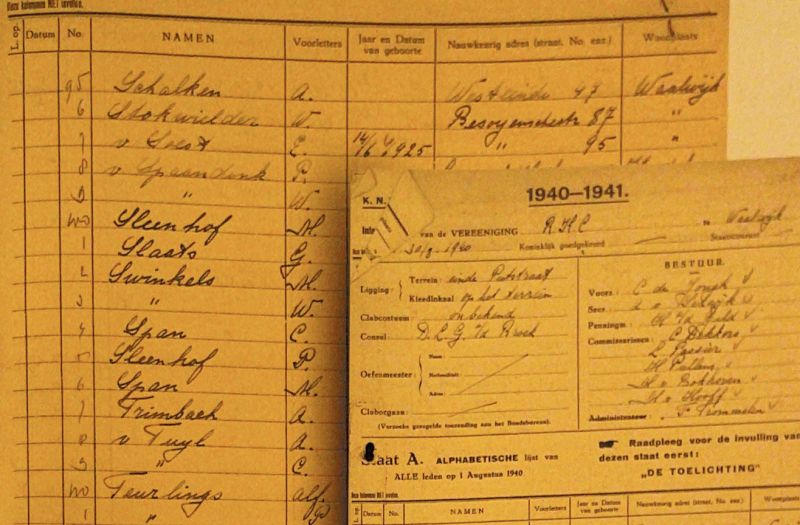 Deze kolommen NIET invullen.
L. op. Datum No. NAMEN Voorletters Jaar en Datum van geboorte Nauwkeurig adres (straat, No. enz.) Woonplaats
95 Schalken A. Westeinde 47 Waalwijk
6 Stokwielder W. Besoyenschestr 87 "
7 v Soest E. 14/6 1925 " 95 "
8 v Spaandonk P.
9 " W.
100 Sleenhof M.
1 Slaats G.
2 Swinkels M.
3 " W.
4 Span C.
5 Sleenhof P.
6 Span M.
7 Trimbach A.
8 v Tuyl A.
9 " C.
110 Teurlings Alf.
1 " P
K. N.
1940-1941.
van de VEREENIGING R.K.C te Waalwijk
Koninklijk goedgekeurd Staatscourant
Ligging: Terrein: einde Putstraat
Kleedlokaal op het terrein
Clubcostuum onbekend
Consul D.L.G. v/d Broek
Oefenmeester: Naam:
Nationaliteit:
Adres:
Cluborgaan:
(Verzoeke geregelde toezending aan het Bondsbureau).
BESTUUR.
Voorz. C de Jongh
Secr.
Penningm.
Commissarissen: C Dekkers
Administrateur
Staat A. ALPHABETISCHE lijst van
ALLE leden op 1 Augustus 1940
Raadpleeg voor de invulling van
dezen staat eerst:
"DE TOELICHTING"
Deze kolommen NIET invullen.
L. op. Datum No. NAMEN Voorletters Jaar en Datum van geboorte Nauwkeurig adres (straat, No. enz.) Woonplaats